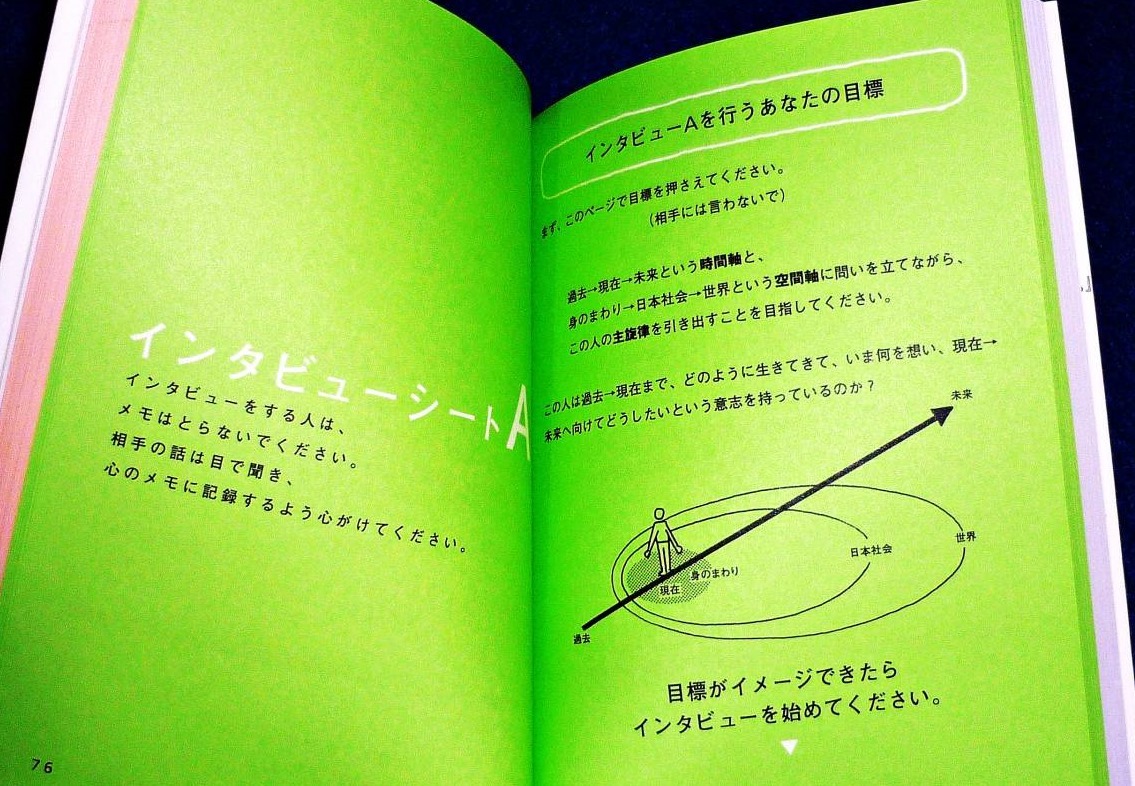 インタビューシートA
インタビューをする人は、
メモはとらないでください。
相手の話は目で聞き、
心のメモに記録するよう心がけてください。
76
インタビューAを行うあなたの目標
まず、このページで目標を押さえてください。
(相手には言わないで)
過去→現在→未来という時間軸と、
身のまわり→日本社会→世界という空間軸に問いを立てながら、
この人の主旋律を引き出すことを目指してください。
この人は過去→現在まで、どのように生きてきて、いま何を想い、現在→
未来へ向けてどうしたいという意志を持っているのか?
未来
世界
日本社会
身のまわり
現在
過去
目標がイメージできたら
インタビューを始めてください。